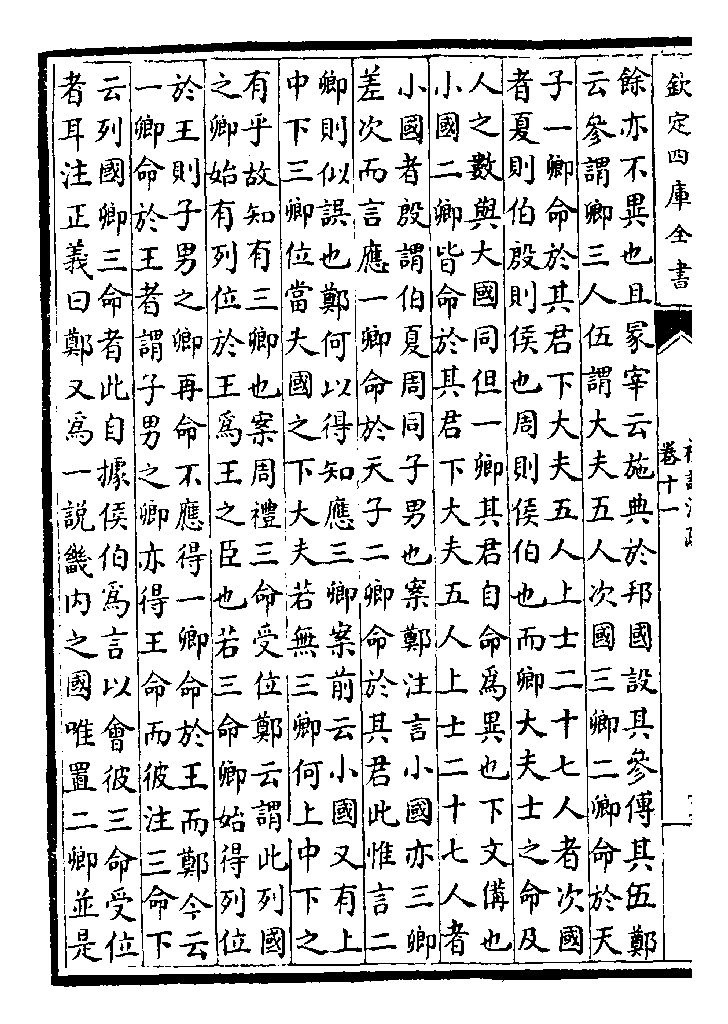 欽定四庫全書
卷十一
餘亦不異也且冢宰云施典於邦國設其參傅其伍鄭
云參謂卿三人伍謂大夫五人次國三卿二卿命於天
子一卿命於其君下大夫五人上士二十七人者次國
者夏則伯殷則侯也周則侯伯也而卿大夫士之命及
人之數與大國同但一卿其君自命為異也下文備也
小國二卿皆命於其君下大夫五人上士二十七人者
小國者殷謂伯夏周同子男也案鄭注言小國亦三卿
差次而言應一卿命於天子二卿命於其君此惟言二
卿則似誤也鄭何以得知應三卿案前云小國又有上
中下三卿位當大國之下大夫若無三卿何上中下之
有乎故知有三卿也案周禮三命受位鄭云謂此列國
之卿始有列位於王為王之臣也若三命卿始得列位
於王則子男之卿再命不應得一卿命於王而鄭今云
一卿命於王者謂子男之卿亦得王命而彼注三命下
云列國卿三命者此自據侯伯為言以會彼三命受位
者耳注正義曰鄭又為一說畿內之國唯置二卿並是